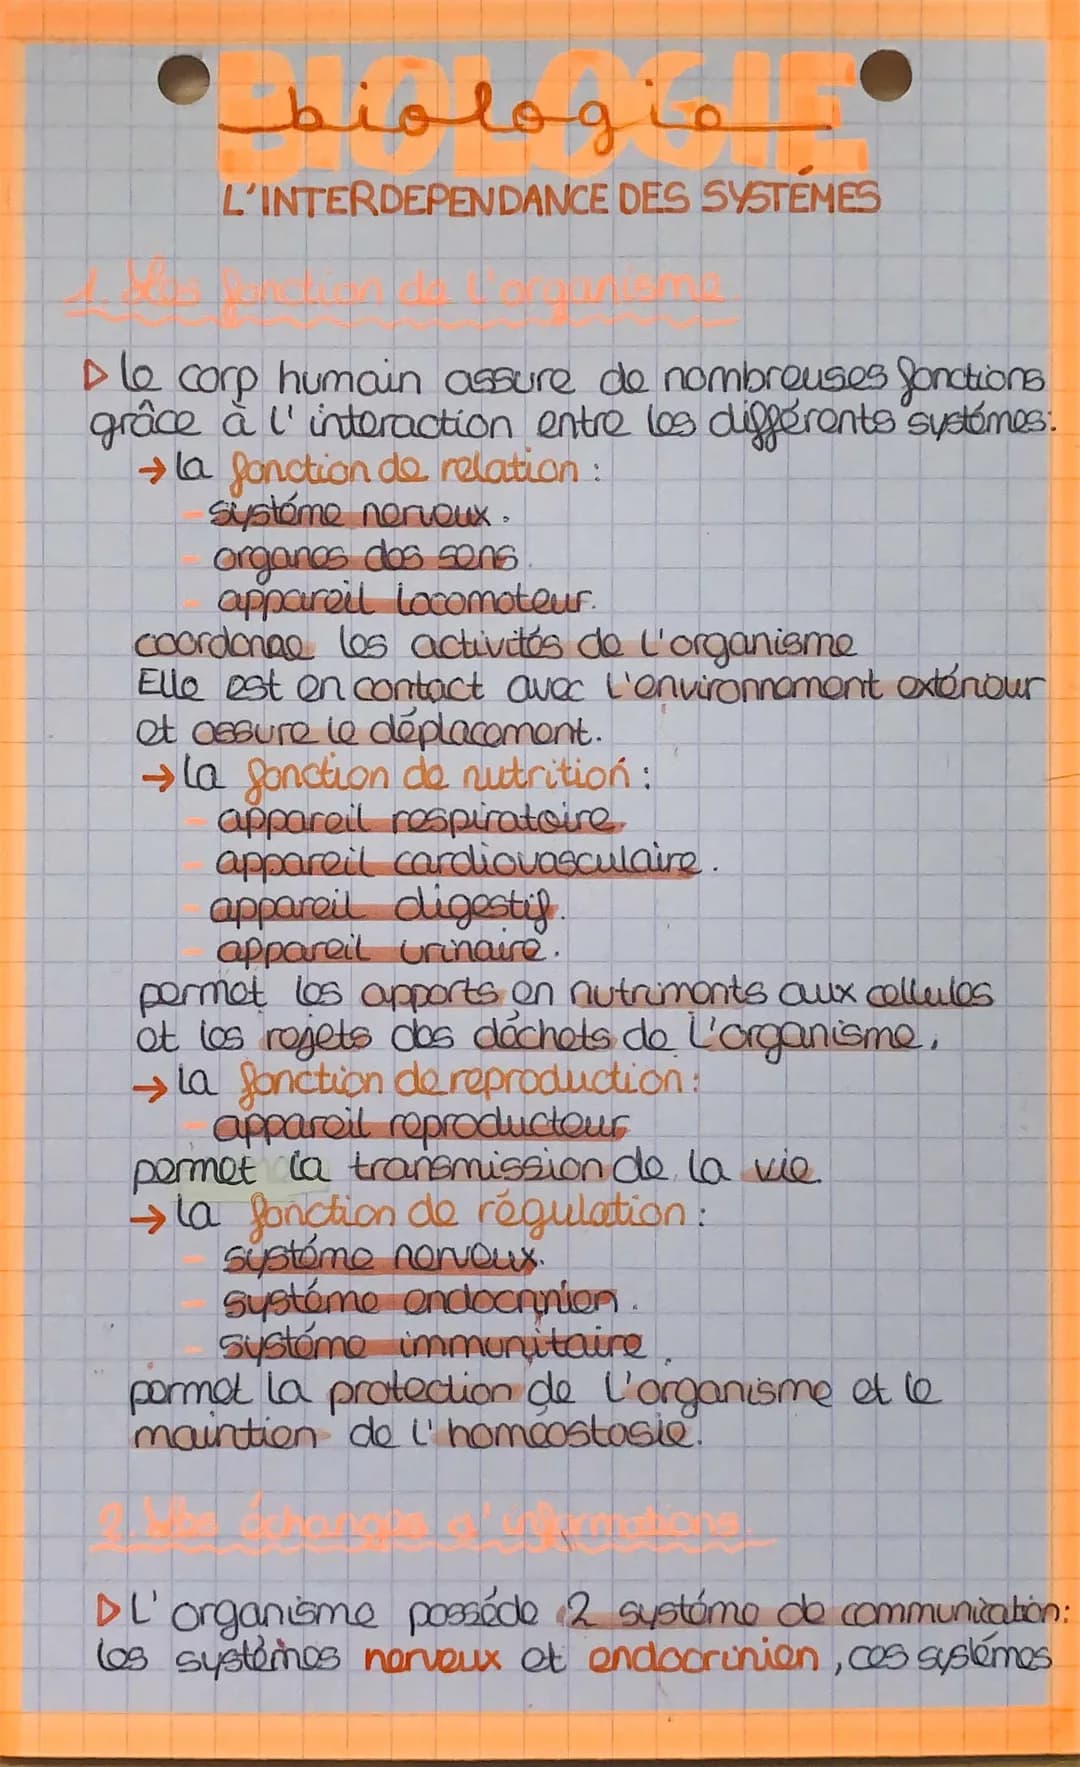 BIOLOGIE
biologie
L'INTERDEPENDANCE DES SYSTÉMES
1. Les fonction de l'organisme.
▷ le corp humain assure de nombreuses fonctions
grâce à l'interaction entre les différents systémes:
→ la fonction de relation :
- systéme nerveux.
- organes des sens.
- appareil locomoteur.
coordonae les activités de l'organisme
Elle est en contact avec l'environnement extérieur
et assure le déplacement.
→ la fonction de nutrition :
- appareil respiratoire.
- appareil cardiovasculaire.
- appareil digestif.
- appareil urinaire.
permet les apports en nutriments aux cellules
et les rejets des déchets de l'organisme,
→ la fonction de reproduction :
- appareil reproducteur
permet la transmission de la vie.
→ la fonction de régulation :
- systéme nerveux.
- systéme endocrinien.
- systéme immunitaire.
permet la protection de l'organisme et le
maintien de l'homéostasie.
2. Les échanges d'informations.
▷ L'organisme posséde 2 systéme de communication:
les systémes nerveux et endocrinien, ces systémes